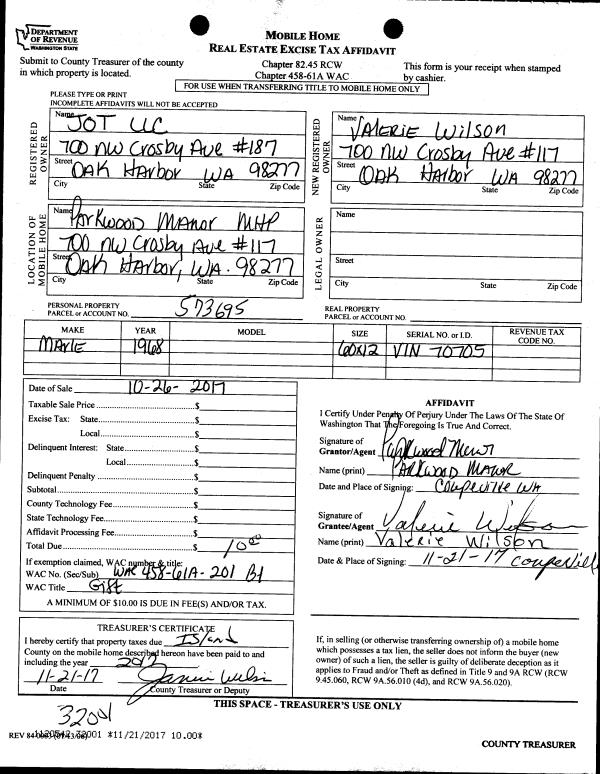 DEPARTMENT
OF REVENUE
WASHINGTON STATE
MOBILE HOME
REAL ESTATE EXCISE TAX AFFIDAVIT
Submit to County Treasurer of the county
in which property is located.
Chapter 82.45 RCW
Chapter 458-61A WAC
This form is your receipt when stamped
by cashier.
FOR USE WHEN TRANSFERRING TITLE TO MOBILE HOME ONLY
PLEASE TYPE OR PRINT
INCOMPLETE AFFIDAVITS WILL NOT BE ACCEPTED
REGISTERED OWNER
Name JOT LLC
700 NW Crosby Ave #187
Street OAK HARBOR WA 98277
City State Zip Code
NEW REGISTERED OWNER
Name VALERIE Wilson
700 NW Crosby Ave #117
Street OAK HARBOR WA 98277
City State Zip Code
LOCATION OF MOBILE HOME
Name PARKWOOD MANOR MHP
700 NW Crosby Ave #117
Street OAK HARBOR, WA. 98277
City State Zip Code
LEGAL OWNER
Name
Street
City State Zip Code
PERSONAL PROPERTY
PARCEL or ACCOUNT NO. 573695
REAL PROPERTY
PARCEL or ACCOUNT NO.
MAKE YEAR MODEL SIZE SERIAL NO. or I.D. REVENUE TAX CODE NO.
1968 60x12 VIN 70705
Date of Sale 10-26-2017
Taxable Sale Price $
Excise Tax: State $
Local $
Delinquent Interest: State $
Local $
Delinquent Penalty $
Subtotal $
County Technology Fee $
State Technology Fee $
Affidavit Processing Fee $
Total Due $ 10.00
If exemption claimed, WAC number & title:
WAC No. (Sec/Sub) WAC 458-61A-201 B1
WAC Title Gift
A MINIMUM OF $10.00 IS DUE IN FEE(S) AND/OR TAX.
AFFIDAVIT
I Certify Under Penalty Of Perjury Under The Laws Of The State Of
Washington That The Foregoing Is True And Correct.
Signature of
Grantor/Agent Parkwood Manor
Name (print) PARKWOOD MANOR
Date and Place of Signing: Coupeville WA
Signature of
Grantee/Agent Valerie Wilson
Name (print) Valerie Wilson
Date & Place of Signing: 11-21-17 Coupevill
TREASURER'S CERTIFICATE
I hereby certify that property taxes due Island
County on the mobile home described hereon have been paid to and
including the year 2017
11-21-17
Date County Treasurer or Deputy
If, in selling (or otherwise transferring ownership of) a mobile home
which possesses a tax lien, the seller does not inform the buyer (new
owner) of such a lien, the seller is guilty of deliberate deception as it
applies to Fraud and/or Theft as defined in Title 9 and 9A RCW (RCW
9.45.060, RCW 9A.56.010 (4d), and RCW 9A.56.020).
THIS SPACE - TREASURER'S USE ONLY
32001
REV 84 32001 *11/21/2017 10.00*
COUNTY TREASURER